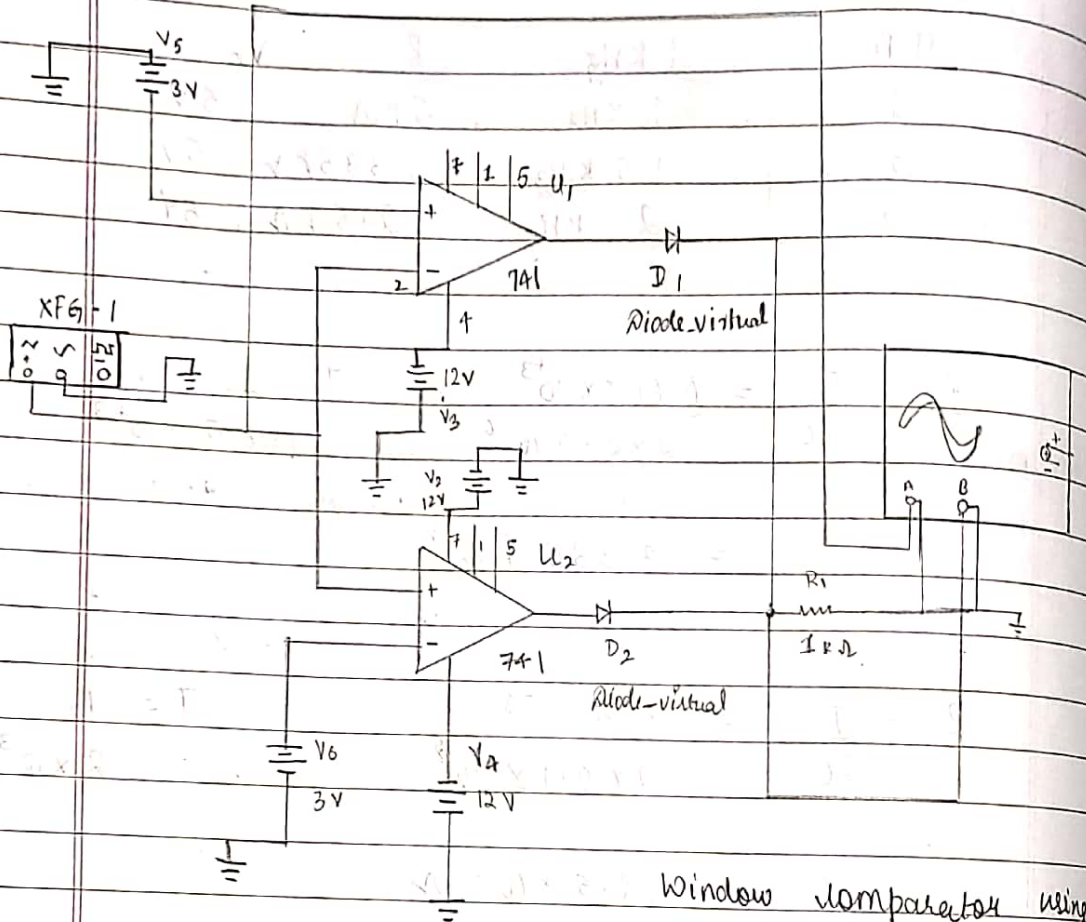 V5
3V
7 1 5 U1
+
-
2
741
D1
Diode_virtual
XFG-1
4
12V
V3
V2
12V
A B
7 1 5 U2
+
-
741
D2
Diode_virtual
R1
1kΩ
V6
3V
V4
12V
Window comparator using